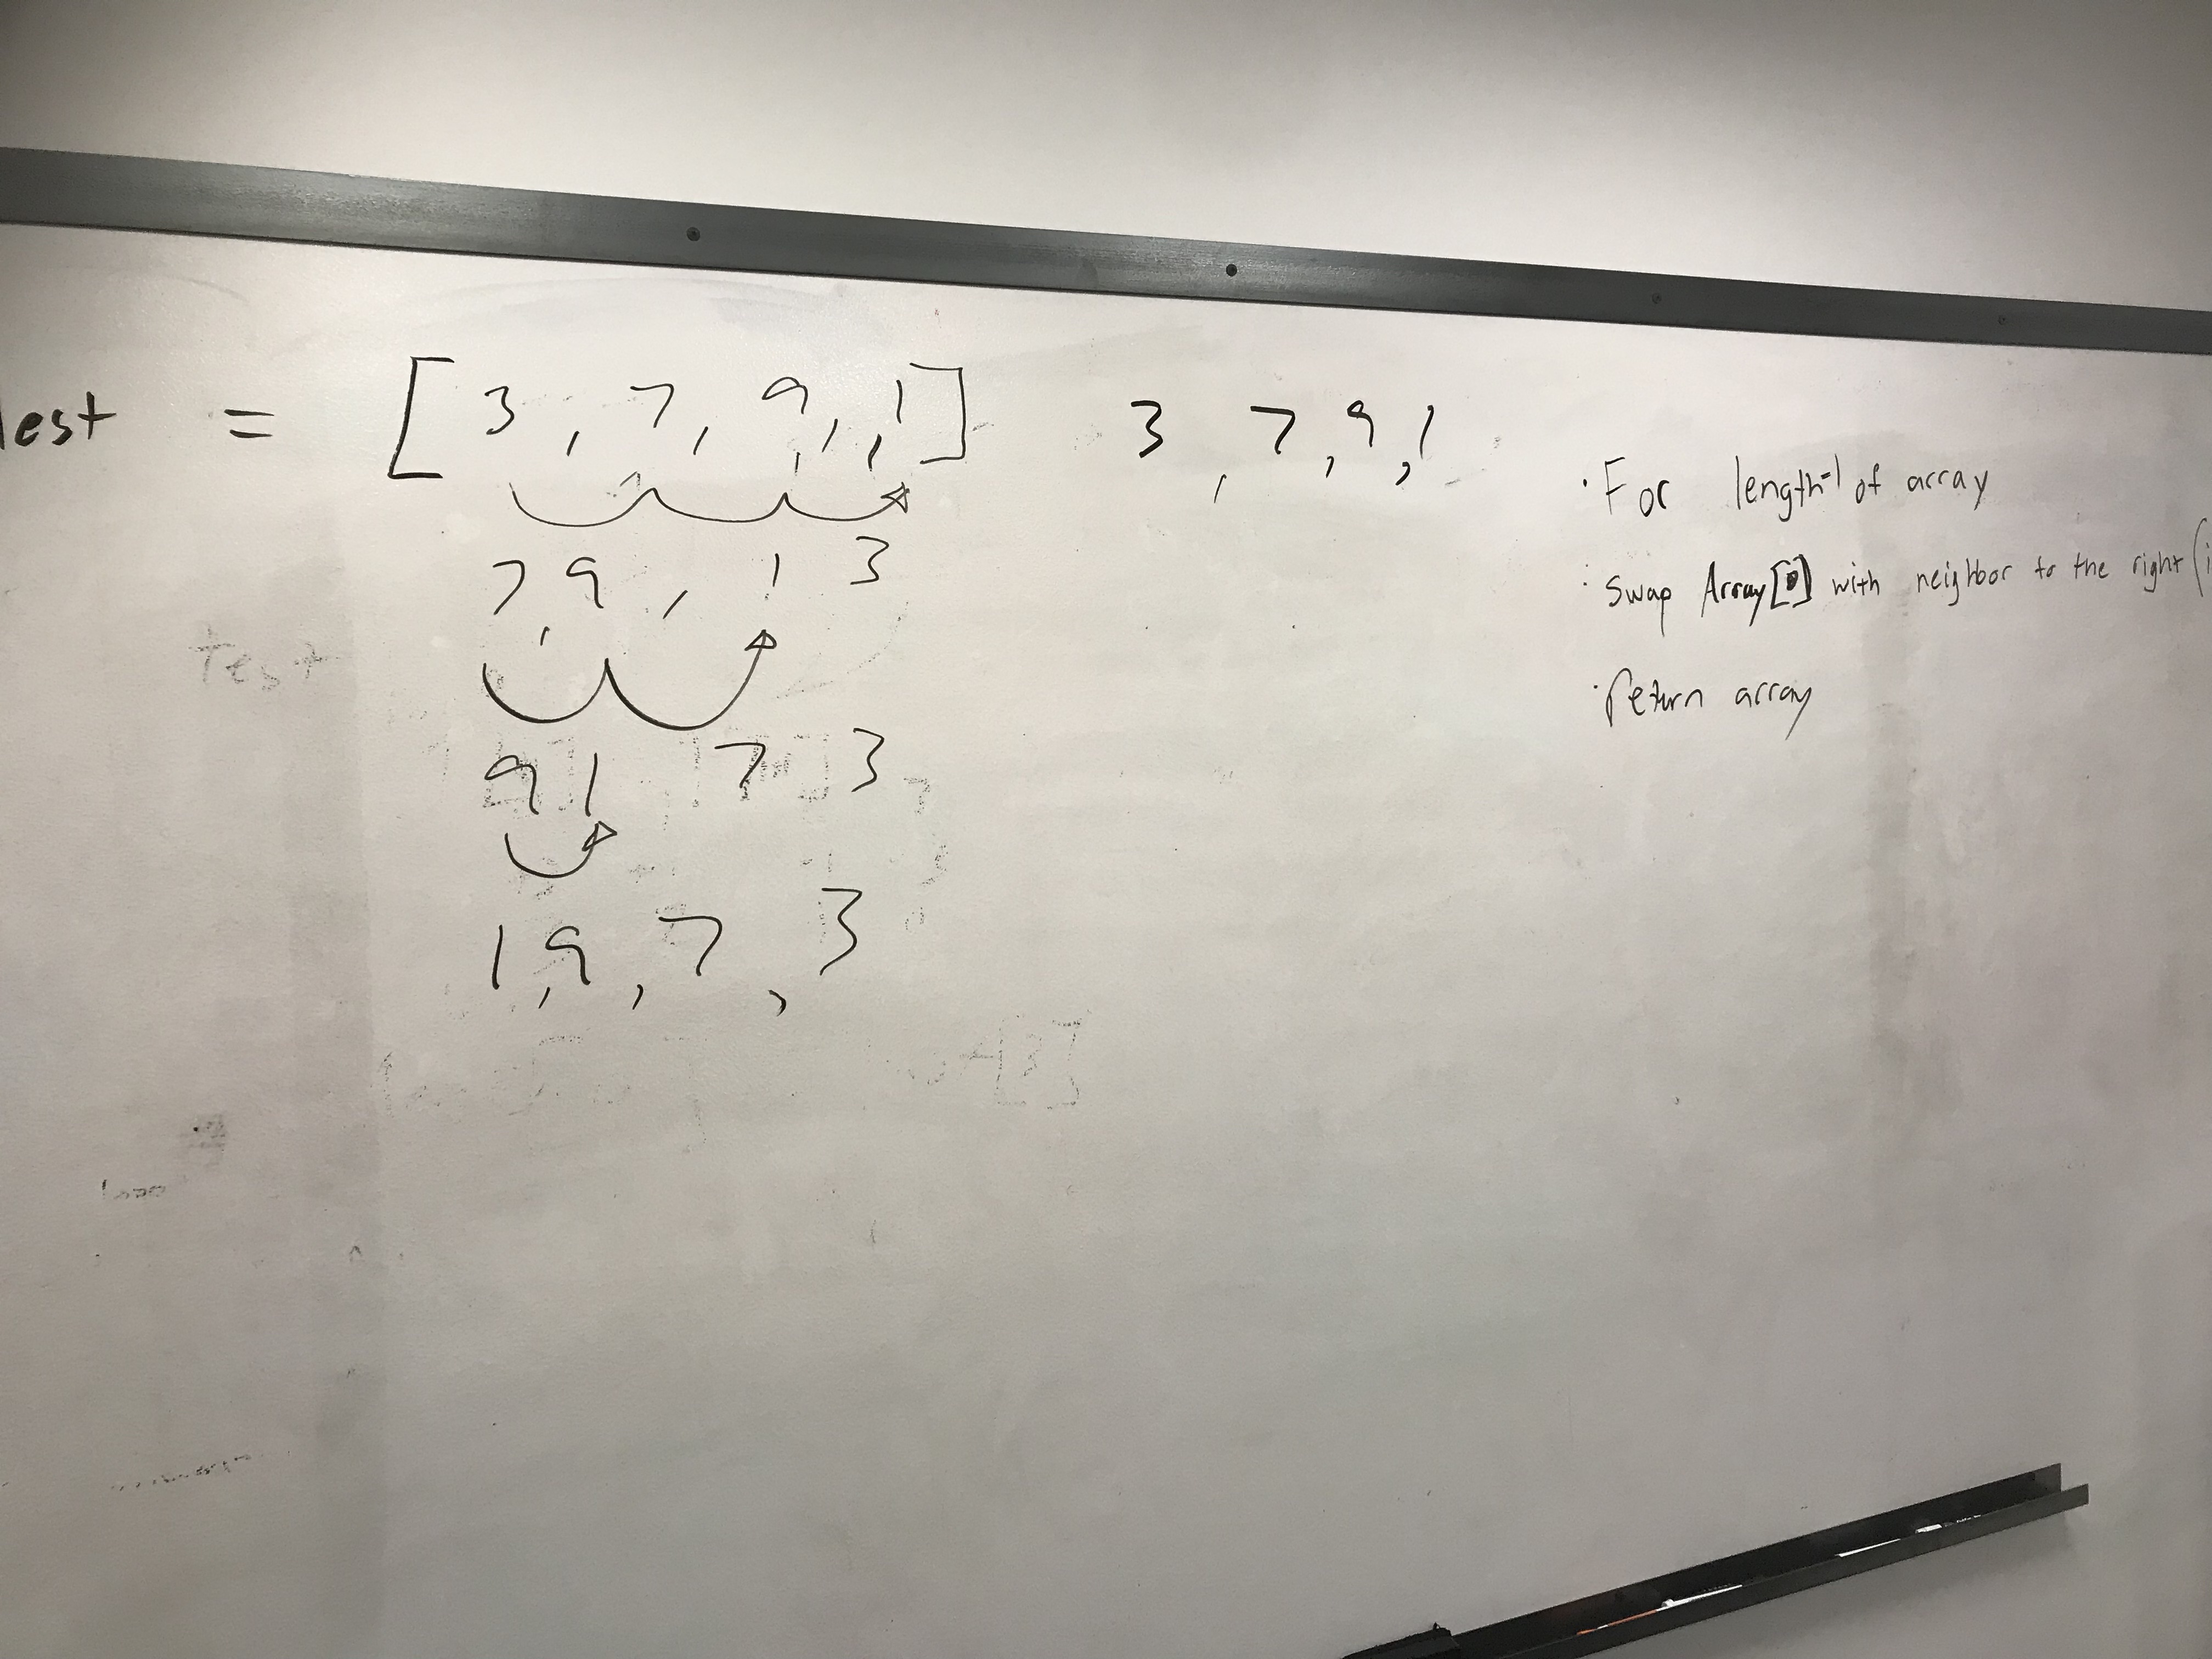 = [ 3, 7, 9, , 1 ]
3, 7, 9, 1
7, 9, 1 3
9 1 7 3
1, 9, 7, 3
Test
· For length-1 of array
· Swap Array[0] with neighbor to the right (i
· return array